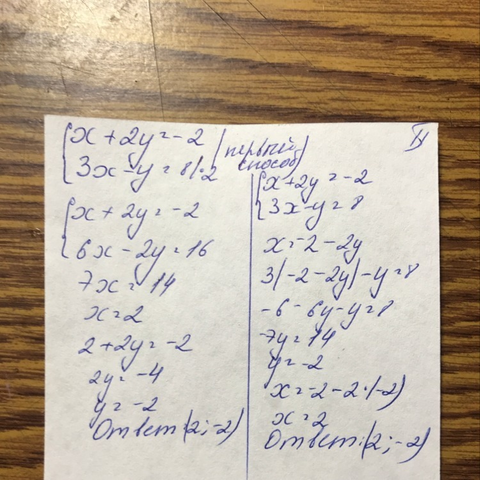 {x + 2y = -2
{3x - y = 8 | · 2
первый способ
{x + 2y = -2
{6x - 2y = 16
7x = 14
x = 2
2 + 2y = -2
2y = -4
y = -2
Ответ: (2; -2)
{x + 2y = -2
{3x - y = 8
x = -2 - 2y
3(-2 - 2y) - y = 8
-6 - 6y - y = 8
-7y = 14
y = -2
x = -2 - 2·(-2)
x = 2
Ответ: (2; -2)